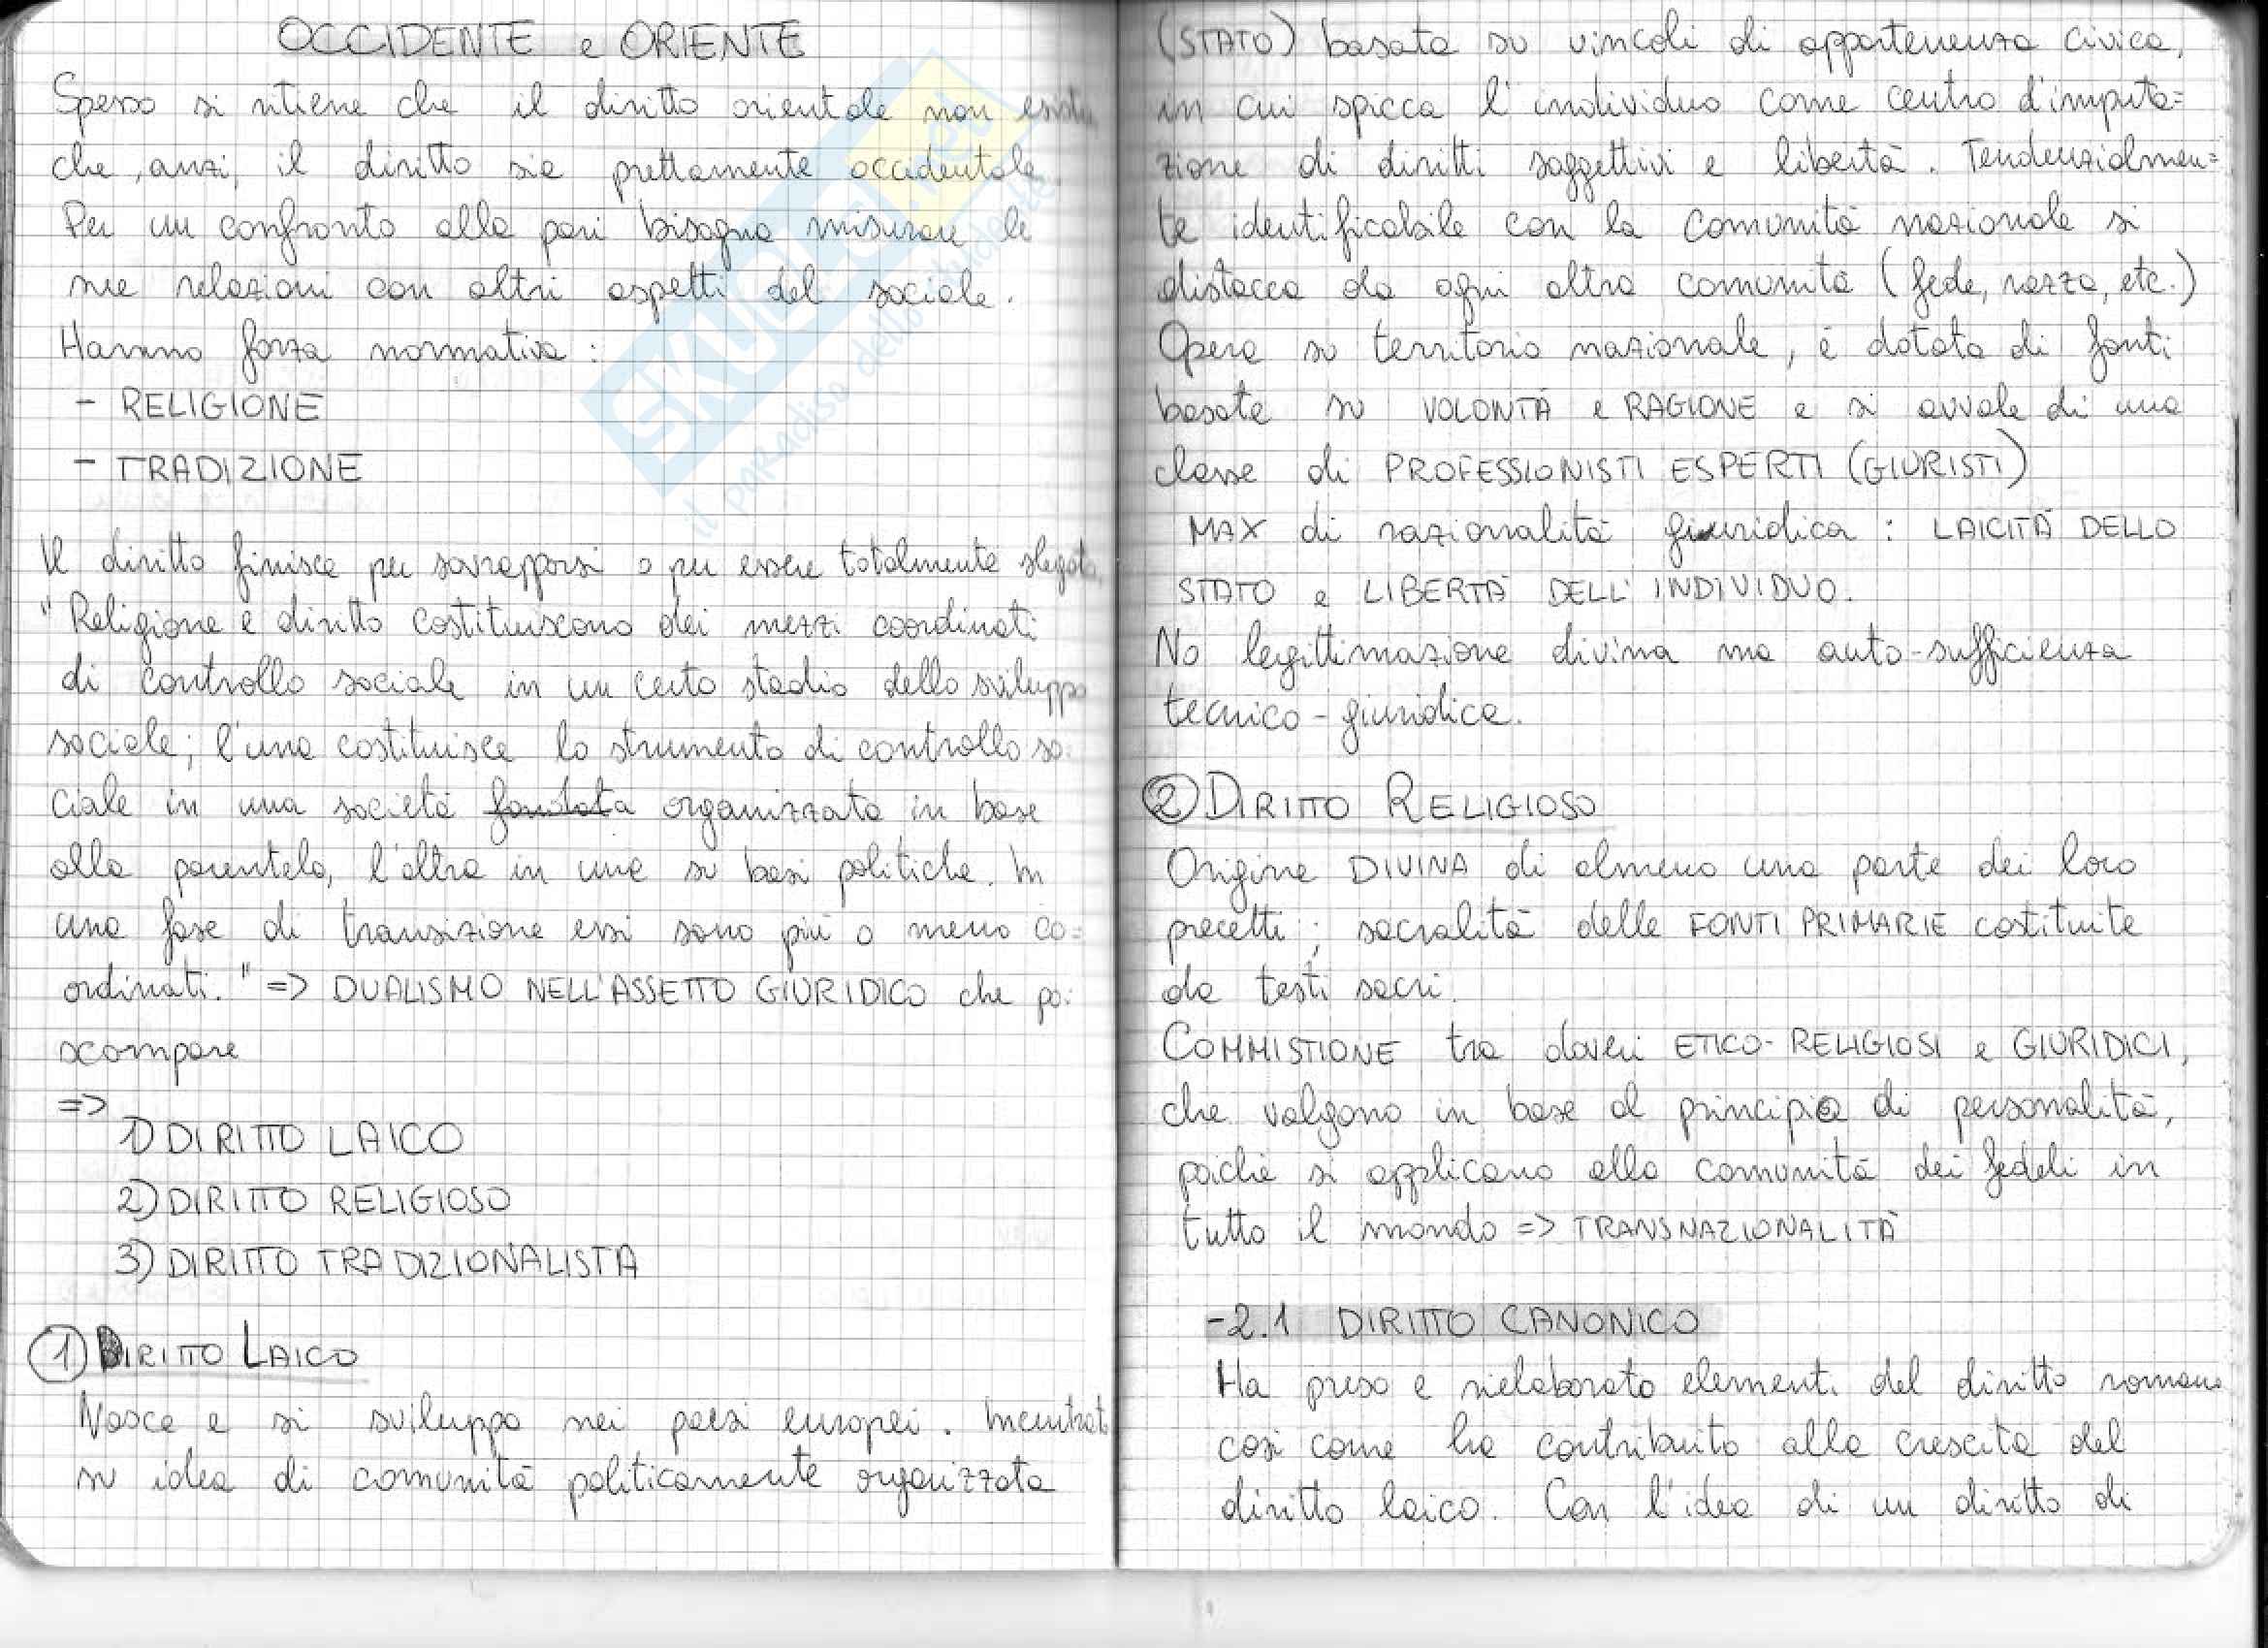 OCCIDENTE e ORIENTE
Spesso si ritiene che il diritto orientale non esista
che, anzi, il diritto sia prettamente occidentale.
Per un confronto alla pari bisogna misurare le
sue relazioni con altri aspetti del sociale.
Hanno forza normativa :
- RELIGIONE
- TRADIZIONE
Il diritto finisce per sovrapporsi o per essere totalmente slegato.
"Religione e diritto costituiscono dei mezzi coordinati
di controllo sociale in un certo stadio dello sviluppo
sociale; l'una costituisce lo strumento di controllo so
ciale in una società fondata organizzata in base
alla parentela, l'altra in una su basi politiche. In
una fase di transizione essi sono più o meno co=
ordinati." => DUALISMO NELL'ASSETTO GIURIDICO che poi
scompare
=>
1) DIRITTO LAICO
2) DIRITTO RELIGIOSO
3) DIRITTO TRADIZIONALISTA
1) DIRITTO LAICO
Nasce e si sviluppa nei paesi europei. Incentrato
su idea di comunità politicamente organizzata
(STATO) basata su vincoli di appartenenza civica,
in cui spicca l'individuo come centro d'imputa=
zione di diritti soggettivi e libertà. Tendenzialmen=
te identificabile con la comunità nazionale si
distacca da ogni altra comunità (fede, razza, etc.)
Opera su territorio nazionale, è dotata di fonti
basate su VOLONTÀ e RAGIONE e si avvale di una
classe di PROFESSIONISTI ESPERTI (GIURISTI)
MAX di razionalità giuridica : LAICITÀ DELLO
STATO e LIBERTÀ DELL'INDIVIDUO.
No legittimazione divina ma auto-sufficienza
tecnico-giuridica.
2) DIRITTO RELIGIOSO
Origine DIVINA di almeno una parte dei loro
precetti ; sacralità delle FONTI PRIMARIE costituite
da testi sacri.
COMMISTIONE tra doveri ETICO-RELIGIOSI e GIURIDICI,
che valgono in base al principio di personalità,
poiché si applicano alla comunità dei fedeli in
tutto il mondo => TRANSNAZIONALITÀ
-2.1 DIRITTO CANONICO
Ha preso e rielaborato elementi del diritto romano
così come ha contribuito alla crescita del
diritto laico. Con l'idea di un diritto di
SKUOLA.net
il paradiso dello studente